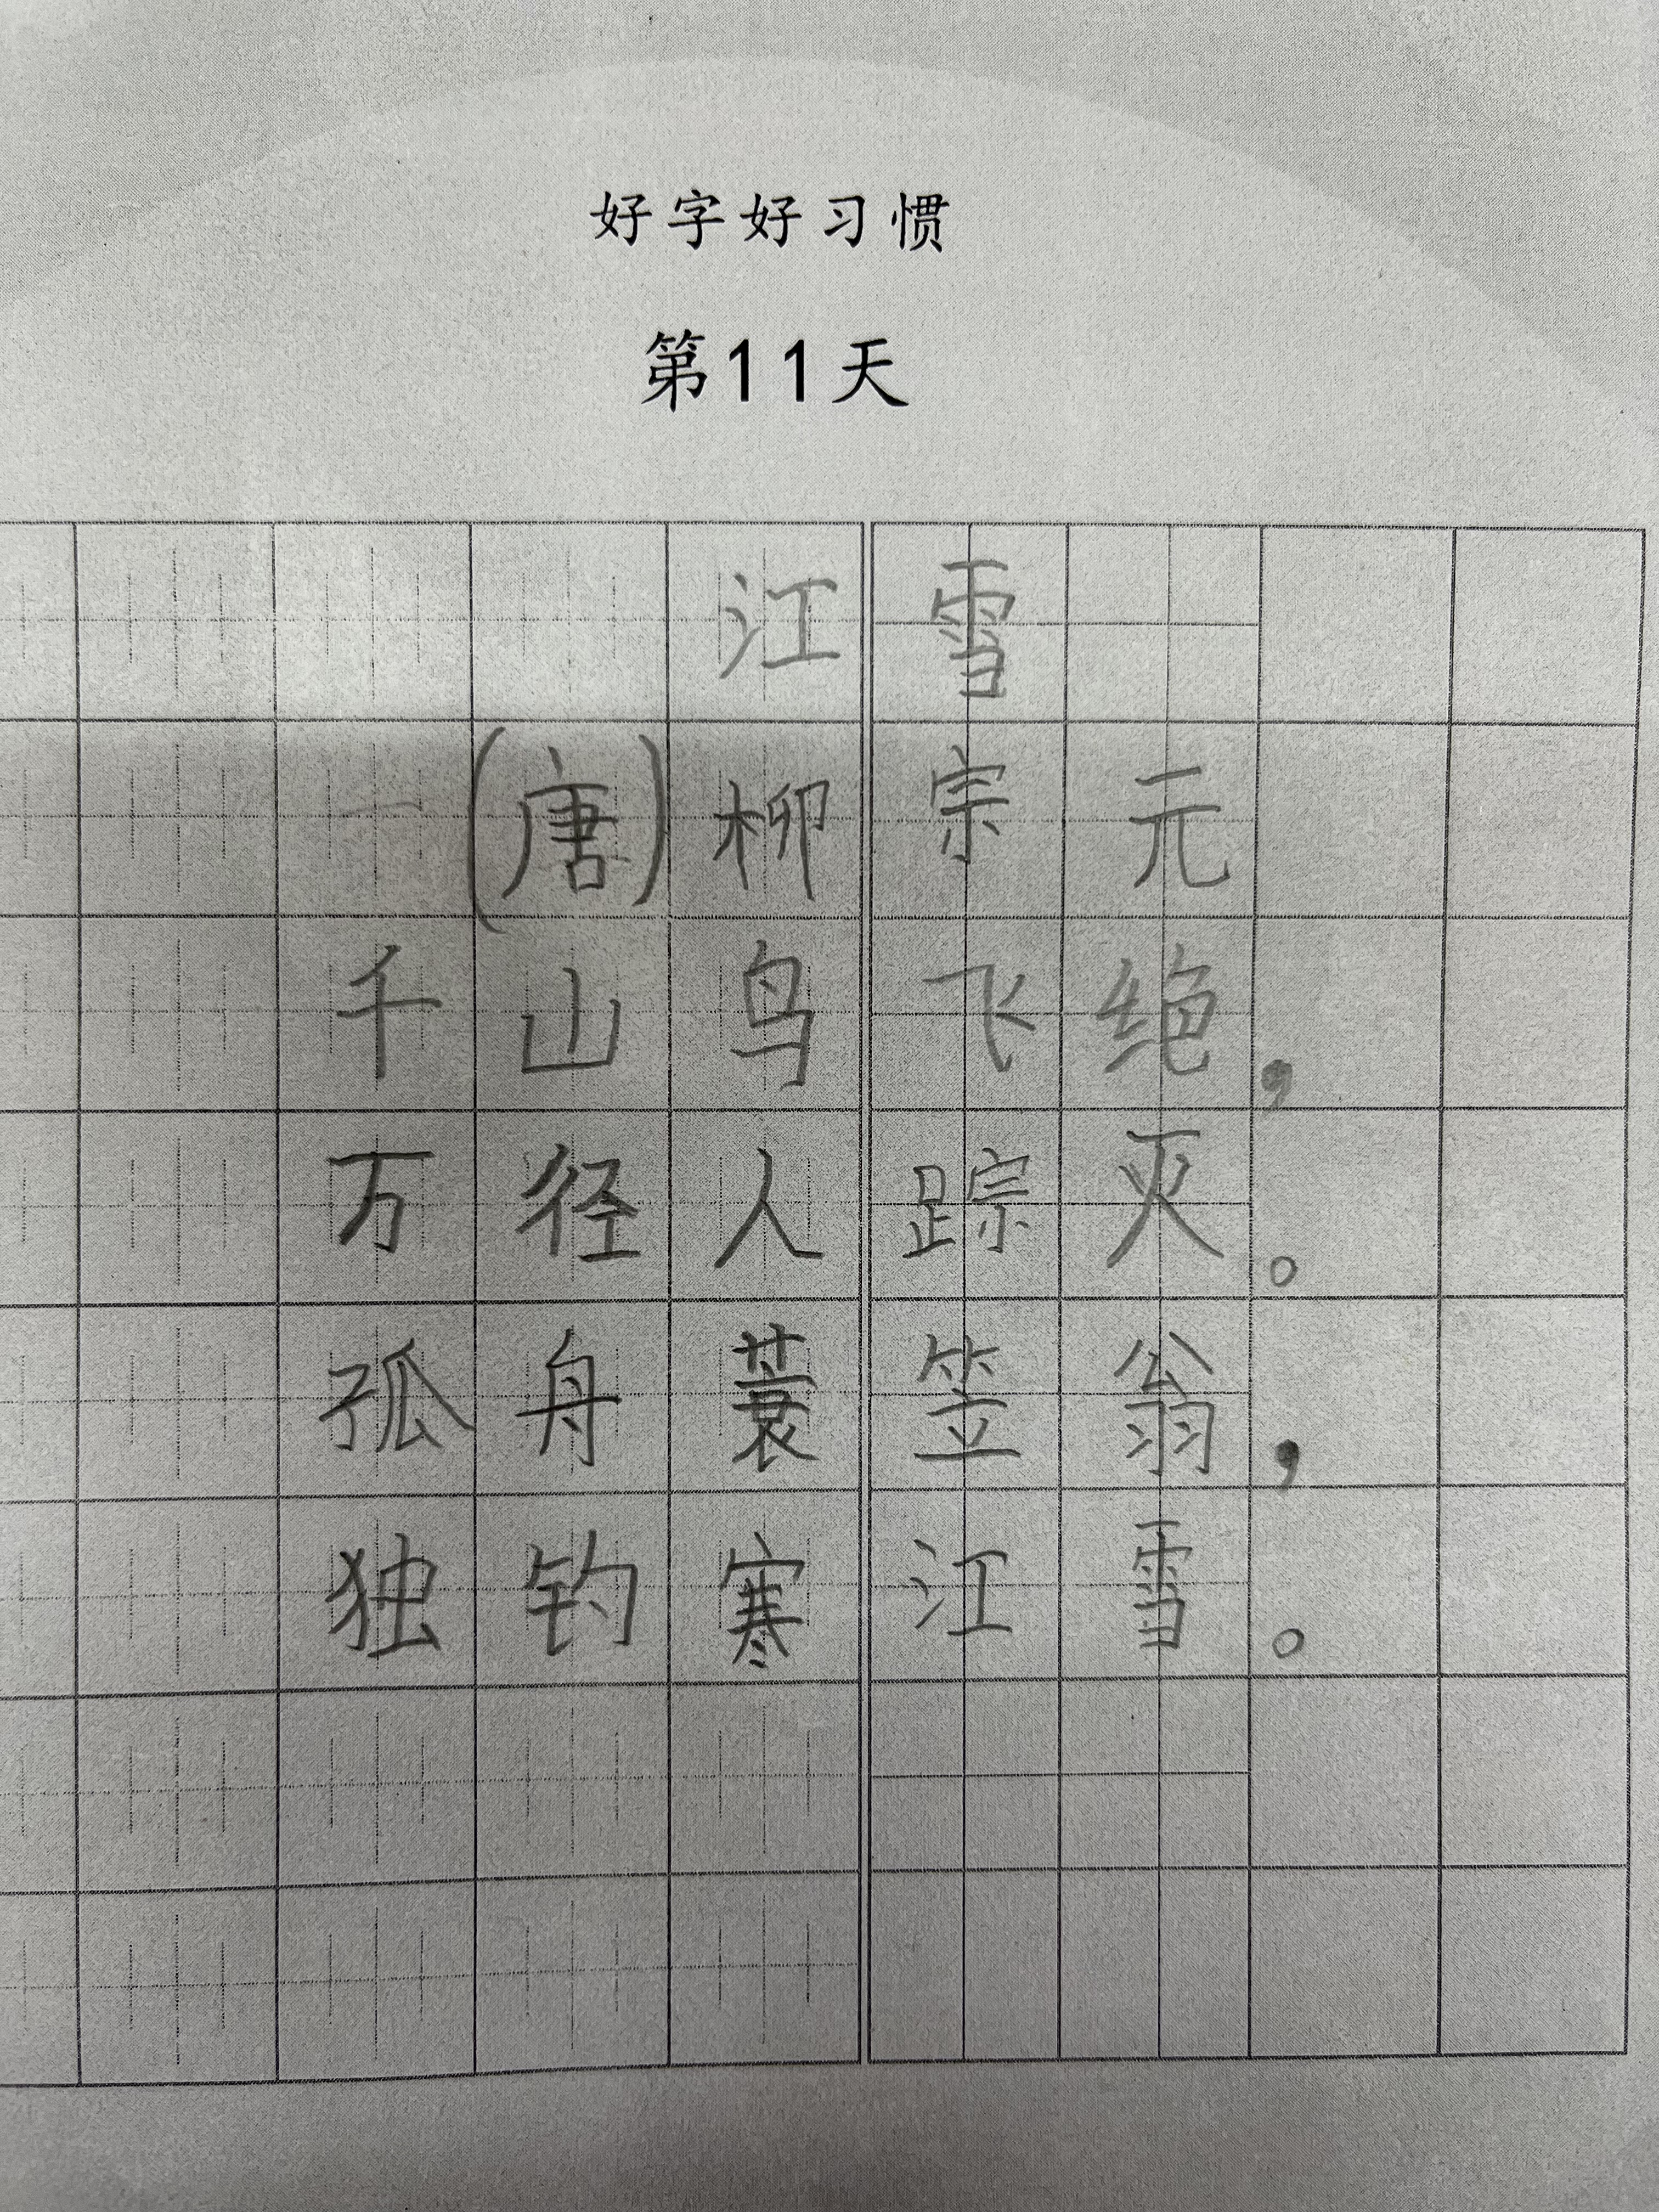 好字好习惯
第11天
江雪
(唐)柳宗元
千山鸟飞绝，
万径人踪灭。
孤舟蓑笠翁，
独钓寒江雪。